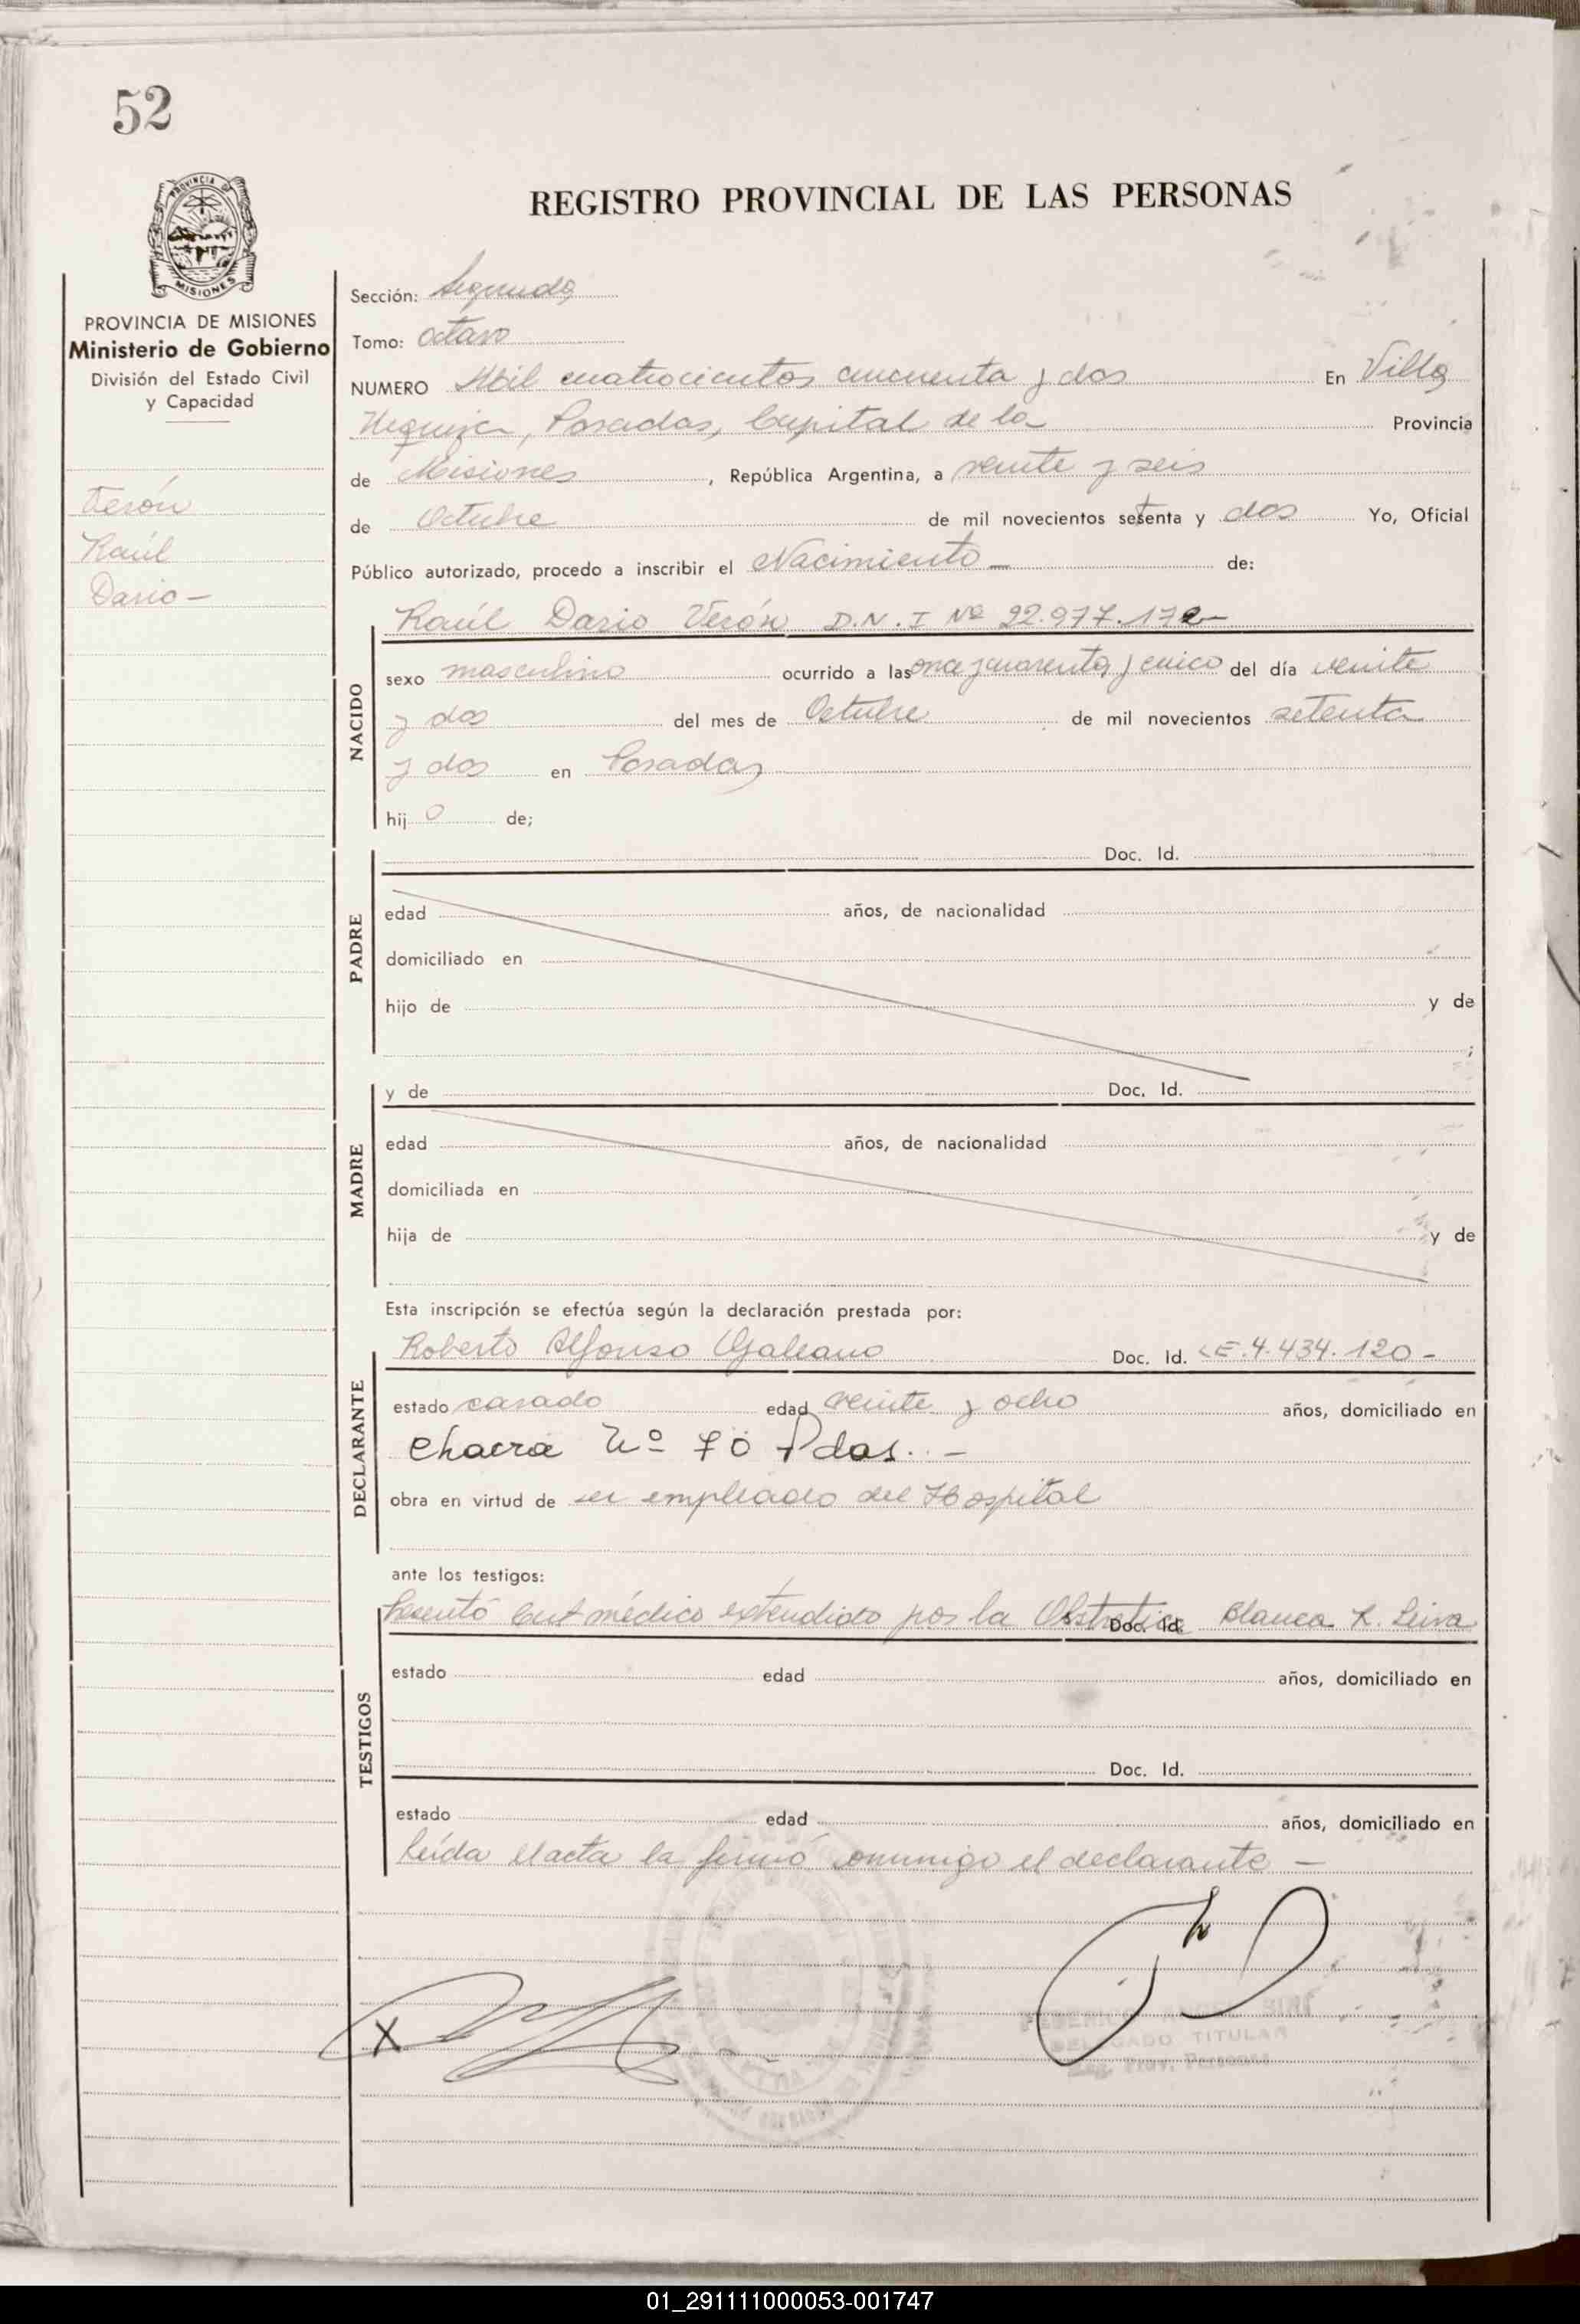 52
PROVINCIA DE
MISIONES
REGISTRO PROVINCIAL DE LAS PERSONAS
PROVINCIA DE MISIONES
Ministerio de Gobierno
División del Estado Civil
y Capacidad
Verón
Raúl
Dario -
Sección: Segunda
Tomo: octavo
NUMERO Mil cuatrocientos cincuenta y dos En Villa
Urquiza, Posadas, Capital de la Provincia
de Misiones, República Argentina, a veinte y seis
de Octubre de mil novecientos setenta y dos Yo, Oficial
Público autorizado, procedo a inscribir el Nacimiento de:
Raúl Dario Verón D.N.I Nº 22.977.172-
NACIDO
sexo masculino ocurrido a las once y cuarenta y cinco del día veinte
y dos del mes de Octubre de mil novecientos setenta
y dos en Posadas
hijo de;
PADRE
Doc. Id.
edad años, de nacionalidad
domiciliado en
hijo de y de
;
MADRE
y de Doc. Id.
edad años, de nacionalidad
domiciliada en
hija de y de
Esta inscripción se efectúa según la declaración prestada por:
DECLARANTE
Roberto Alfonso Galeano Doc. Id. LE.4.434.120-
estado casado edad veinte y ocho años, domiciliado en
chacra Nº 70 Pdas. -
obra en virtud de ser empleado del Hospital
ante los testigos:
TESTIGOS
Presentó Cert médico extendido por la Obstetrica Doc. Id. Blanca R. Leiva
estado edad años, domiciliado en
Doc. Id.
estado edad años, domiciliado en
Leída el acta la firmó conmigo el declarante -
X
DELEGADO TITULAR
Reg. Prov. Personas
01_291111000053-001747